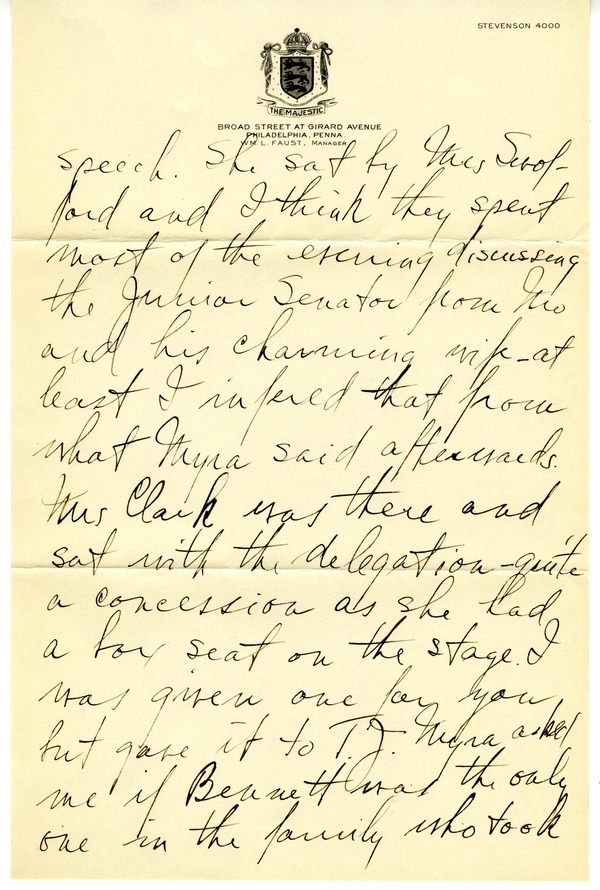 STEVENSON 4000
THE MAJESTIC
BROAD STREET AT GIRARD AVENUE
PHILADELPHIA, PENNA.
WM. L. FAUST, MANAGER
speech. She sat by Mrs Swof-
ford and I think they spent
most of the evening discussing
the Junior Senator from Mo
and his charming wife - at
least I infered that from
what Myra said afterwards.
Mrs Clark was there and
sat with the delegation - quite
a concession as she had
a box seat on the stage. I
was given one for you
but gave it to T.J. Myra asked
me if Bennett was the only
one in the family who took